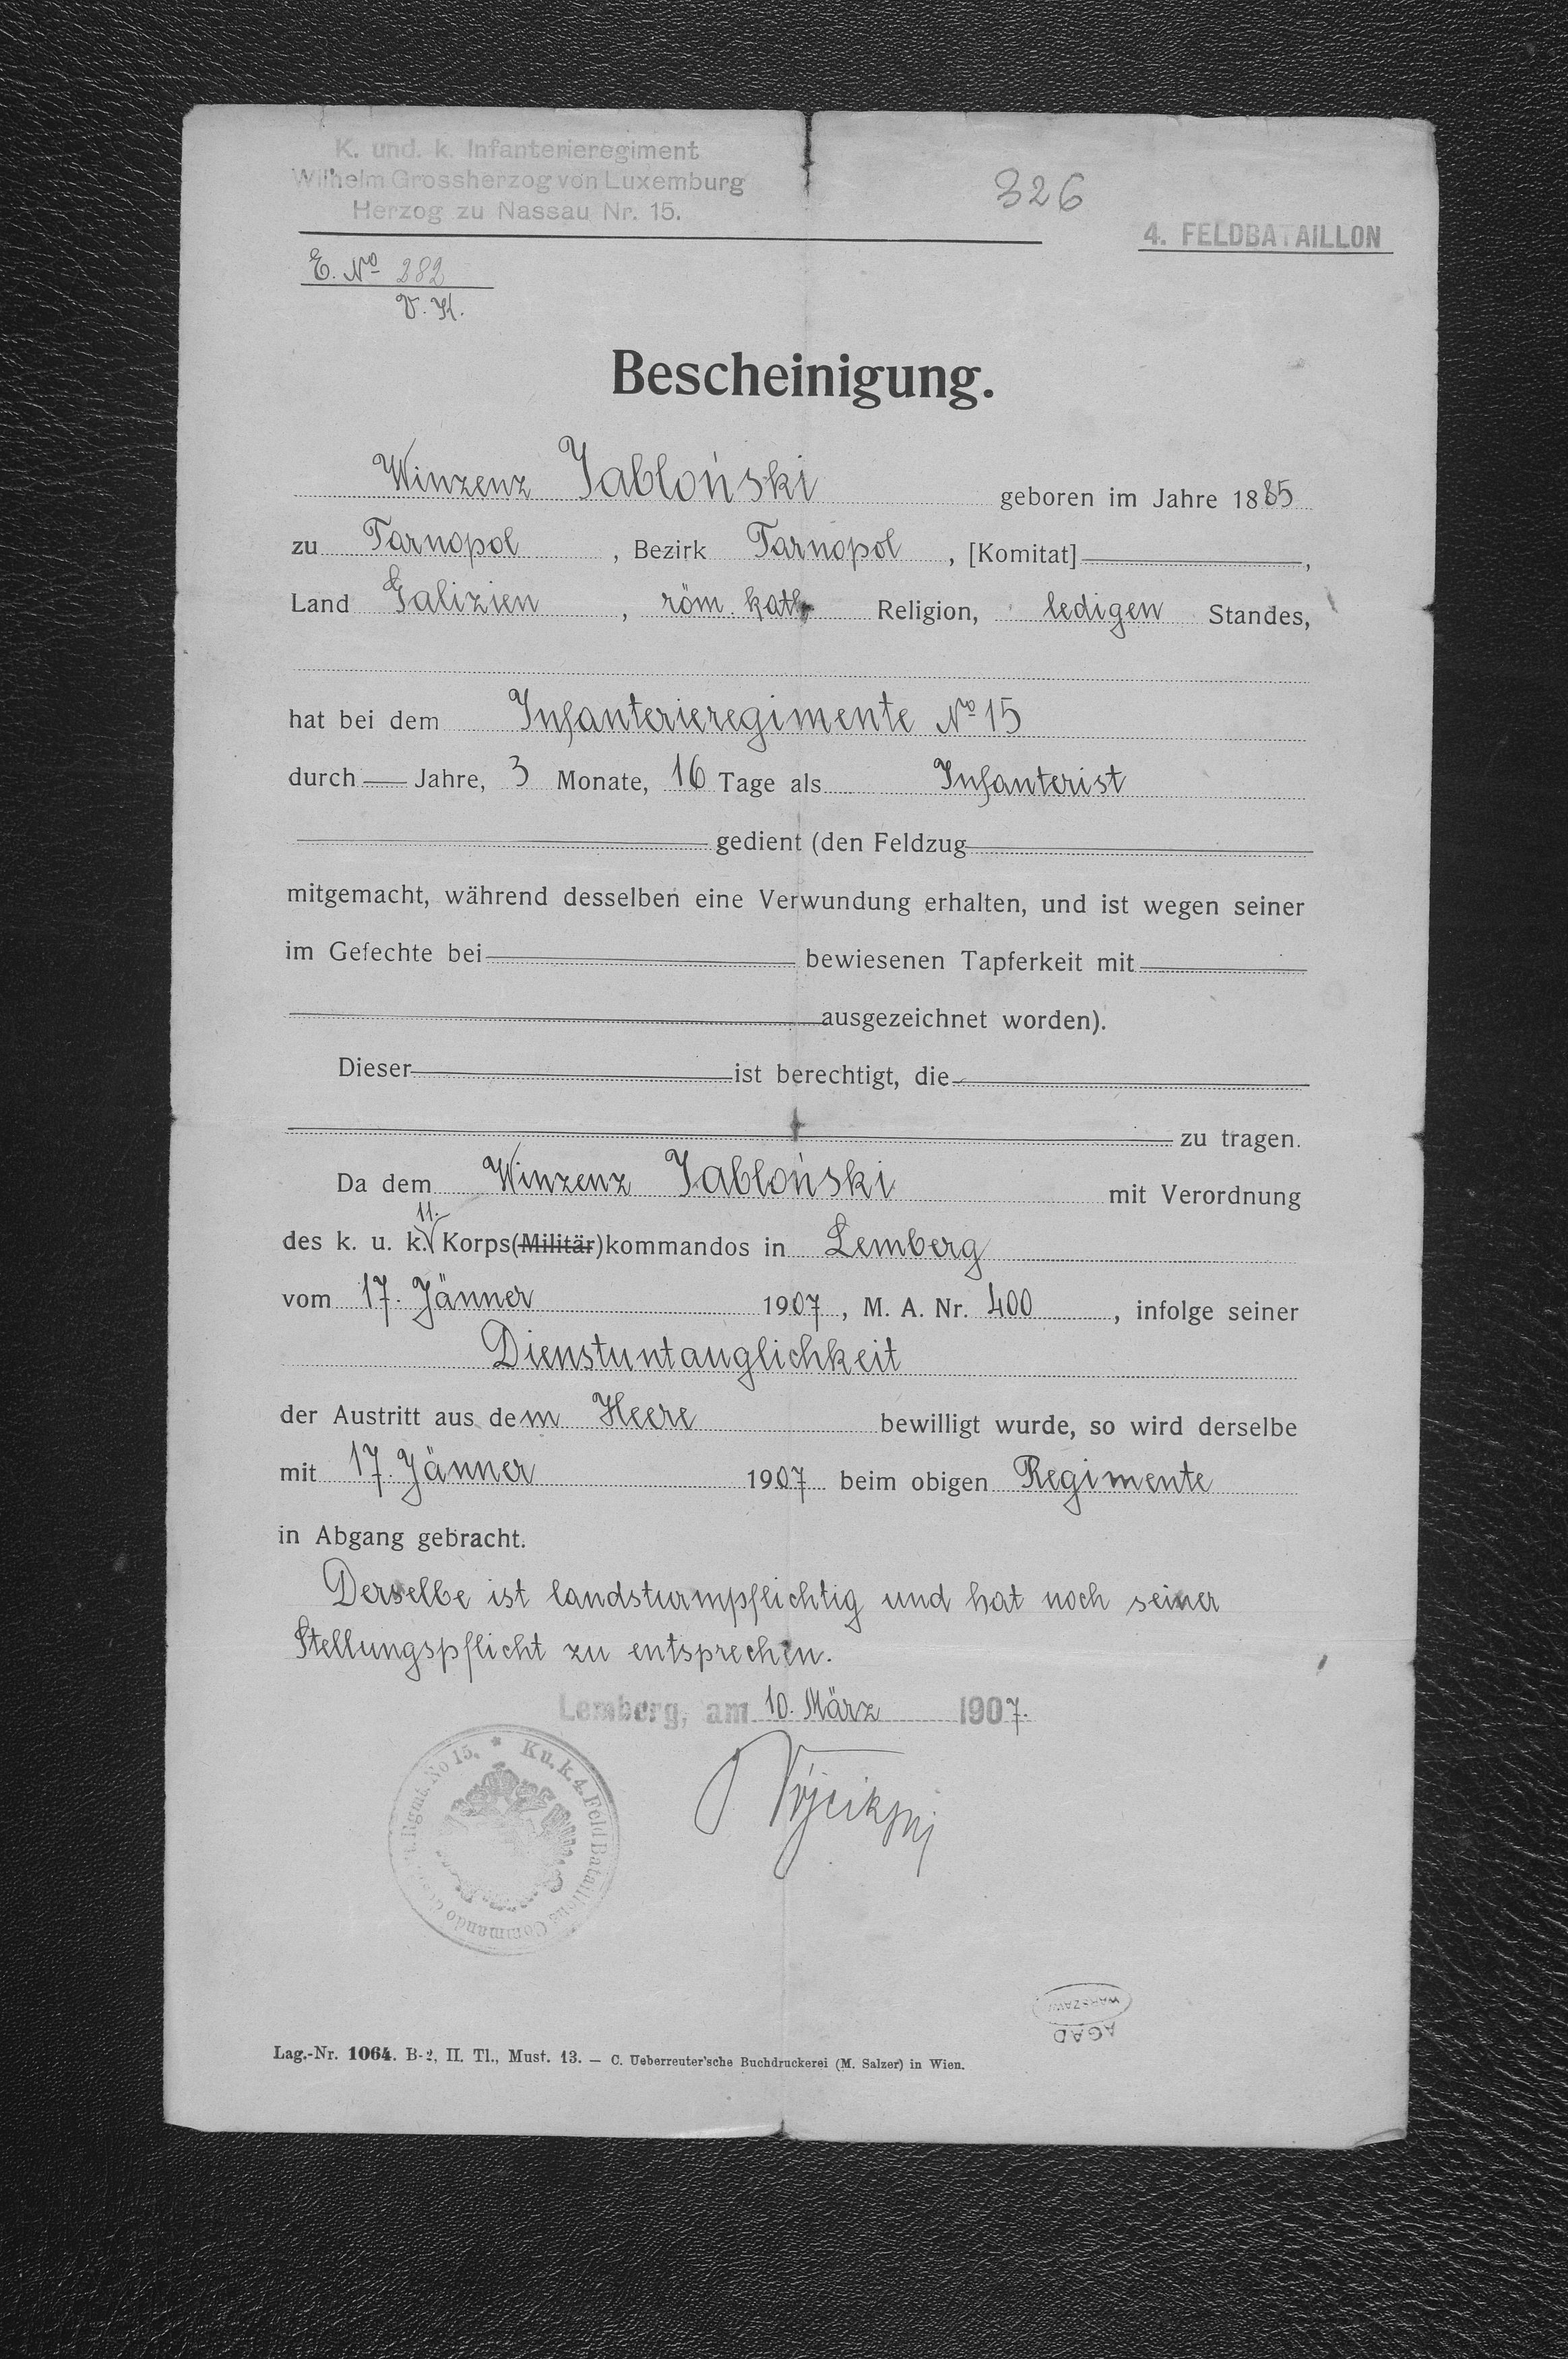 K. und. k. Infanterieregiment
Wilhelm Grossherzog von Luxemburg
Herzog zu Nassau Nr. 15.
326
4. FELDBATAILLON
E. No 282
V. K.
Bescheinigung.
Winzenz Jabłoński geboren im Jahre 1885
zu Tarnopol, Bezirk Tarnopol, [Komitat],
Land Galizien, röm. kath. Religion, ledigen Standes,
hat bei dem Infanterieregimente No 15
durch Jahre, 3 Monate, 16 Tage als Infanterist
gedient (den Feldzug
mitgemacht, während desselben eine Verwundung erhalten, und ist wegen seiner
im Gefechte bei bewiesenen Tapferkeit mit
ausgezeichnet worden).
Dieser ist berechtigt, die
zu tragen.
Da dem Winzenz Jabłoński mit Verordnung
des k. u. k. 11. Korps(Militär)kommandos in Lemberg
vom 17. Jänner 1907, M. A. Nr. 400, infolge seiner
Dienstuntauglichkeit
der Austritt aus dem Heere bewilligt wurde, so wird derselbe
mit 17. Jänner 1907 beim obigen Regimente
in Abgang gebracht.
Derselbe ist landsturmpflichtig und hat noch seiner
Stellungspflicht zu entsprechen.
Lemberg, am 10. März 1907.
K u. k. 4. Feld Bataillons Commando Rgmt. No 15. *
AGAD
WARSZAWA
Lag.-Nr. 1064. B-2, II. Tl., Must. 13. — C. Ueberreuter'sche Buchdruckerei (M. Salzer) in Wien.